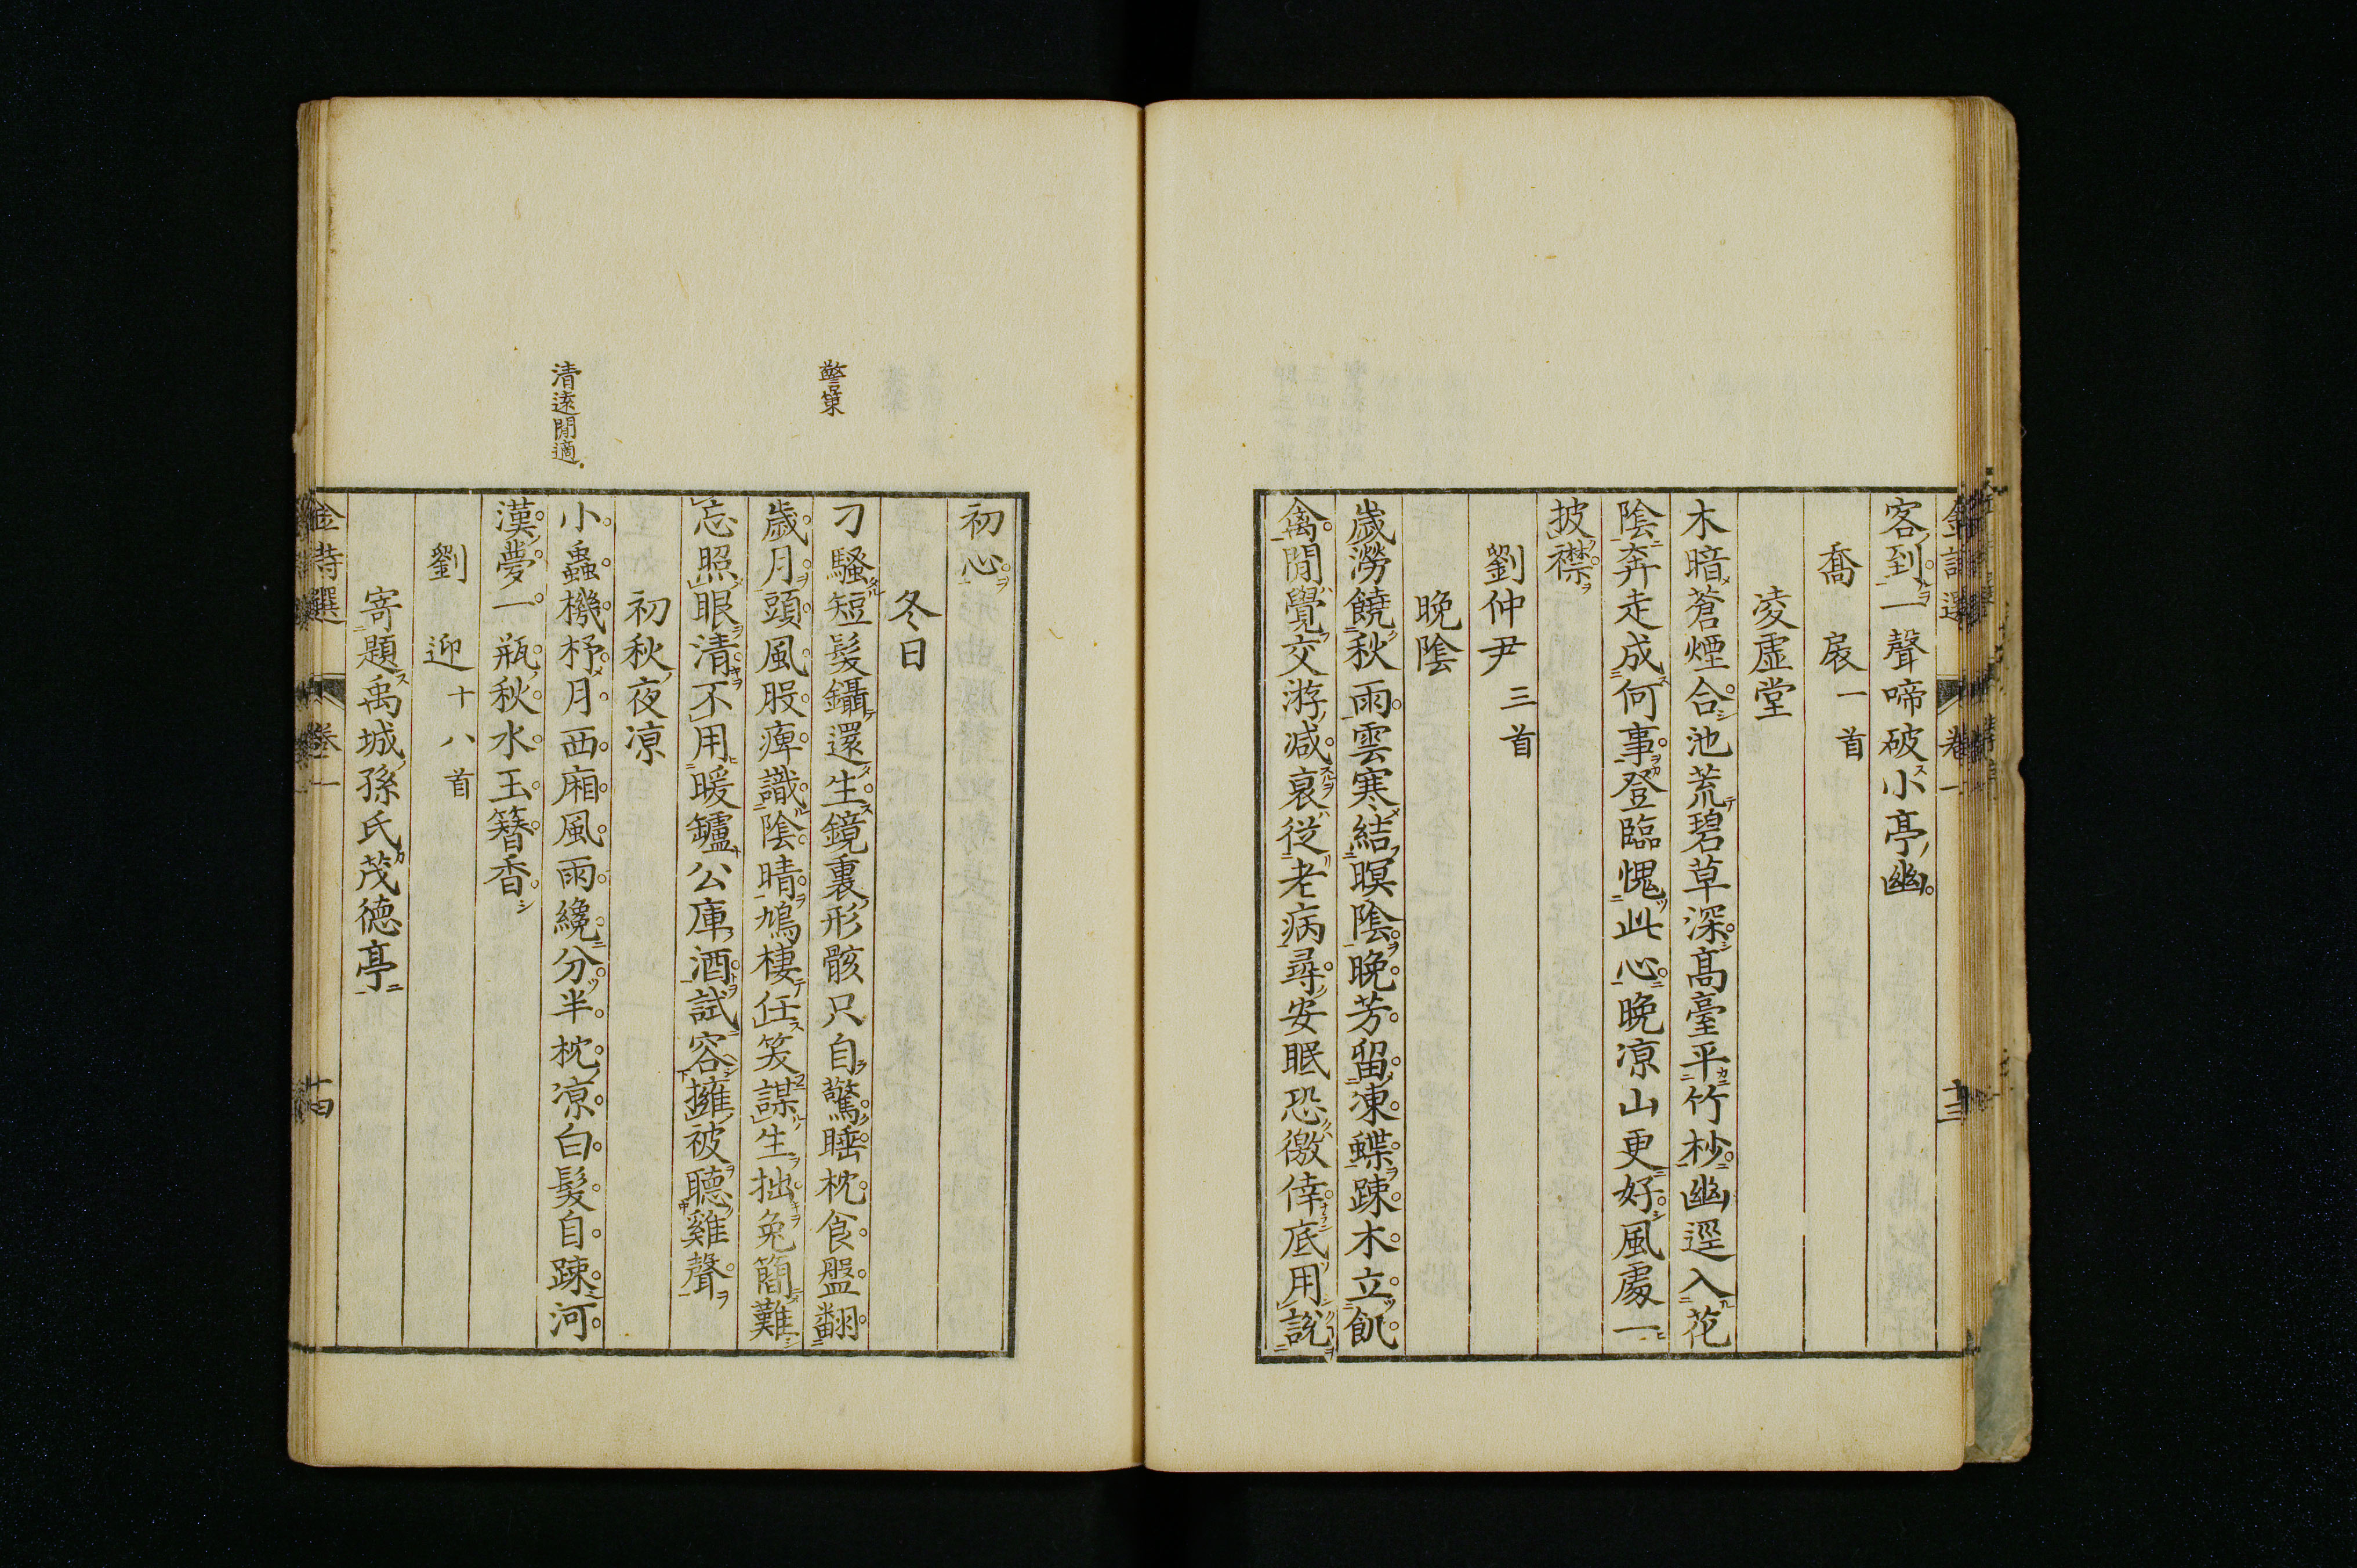 客到一聲啼破小亭幽
喬扆一首
凌虛堂
木暗蒼煙合池荒碧草深高臺平竹杪幽逕入花
陰奔走成何事登臨愧此心晚凉山更好風處一
披襟
劉仲尹三首
晚陰
歲澇饒秋雨雲寒結暝陰晚芳留凍蝶踈木立飢
禽閒覺交游減衰從老病尋安眠恐徼倖底用說
初心
冬日
刁騷短髮鑷還生鏡裏形骸只自驚睡枕食盤翻
歲月頭風股痺識陰晴鳩棲任笑謀生拙兔簡難
忘照眼清不用暖鑪公庫酒試容擁被聽雞聲
初秋夜凉
小蟲機杼月西廂風雨纔分半枕凉白髮自踈河
漢夢一瓶秋水玉簪香
劉迎十八首
寄題禹城孫氏茂德亭
警策
清遠閒適
金詩選 卷一 十三
金詩選 卷一 十四